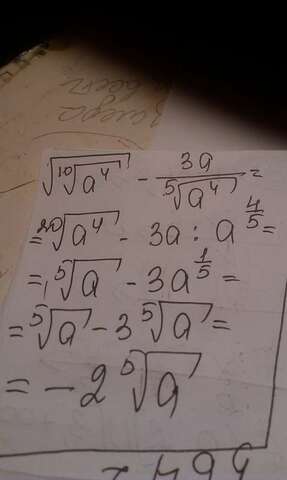 √(¹⁰√(a⁴)) - 3a/⁵√(a⁴) =
= ²⁰√(a⁴) - 3a : a^(4/5) =
= ⁵√a - 3a^(1/5) =
= ⁵√a - 3 ⁵√a =
= -2 ⁵√a